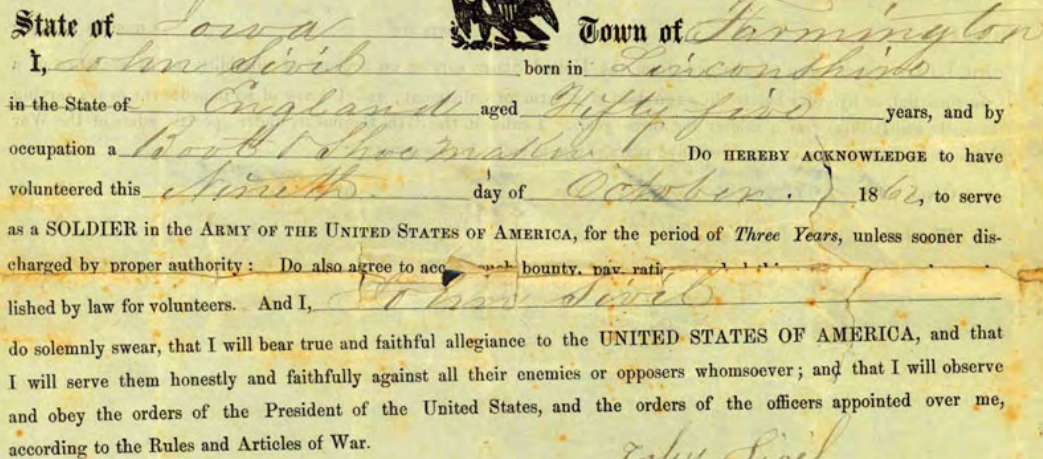 State of Iowa Town of Farmington
I, John Sivil born in Linconshire
in the State of England aged Fifty five years, and by
occupation a Boot & Shoe maker DO HEREBY ACKNOWLEDGE to have
volunteered this Nineth day of October. 1862, to serve
as a SOLDIER in the ARMY OF THE UNITED STATES OF AMERICA, for the period of Three Years, unless sooner dis-
charged by proper authority: Do also agree to bounty, pay,
lished by law for volunteers. And I, John Sivil
do solemnly swear, that I will bear true and faithful allegiance to the UNITED STATES OF AMERICA, and that
I will serve them honestly and faithfully against all their enemies or opposers whomsoever; and that I will observe
and obey the orders of the President of the United States, and the orders of the officers appointed over me,
according to the Rules and Articles of War.
John Sivil